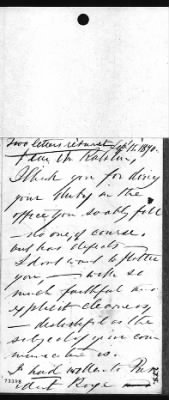 Two letters returned Sep. 12. 1870.
Dear Mr Ralston,
I thank you for doing
your duty in the
office you so ably fill
— no one, of course,
but has defects —
I don't want to flatter
you — with so
much faithful and
explicit clearness
— distasteful as the
subject of your com
munication is.
I had written to Pres
ident Roye
73395